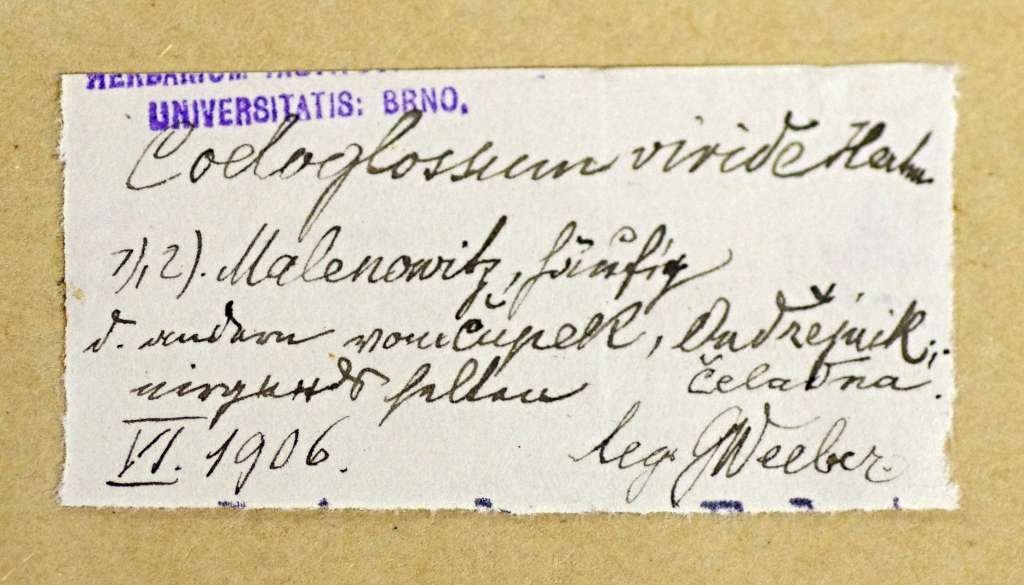 HERBARIUM
UNIVERSITATIS: BRNO.
Coeloglossum viride Hartm
1), 2). Malenowitz, häufig
d. andern vom Čupek, Ondřejnik;
nirgends selten Čeladna.
VI. 1906.
leg. GWeeber